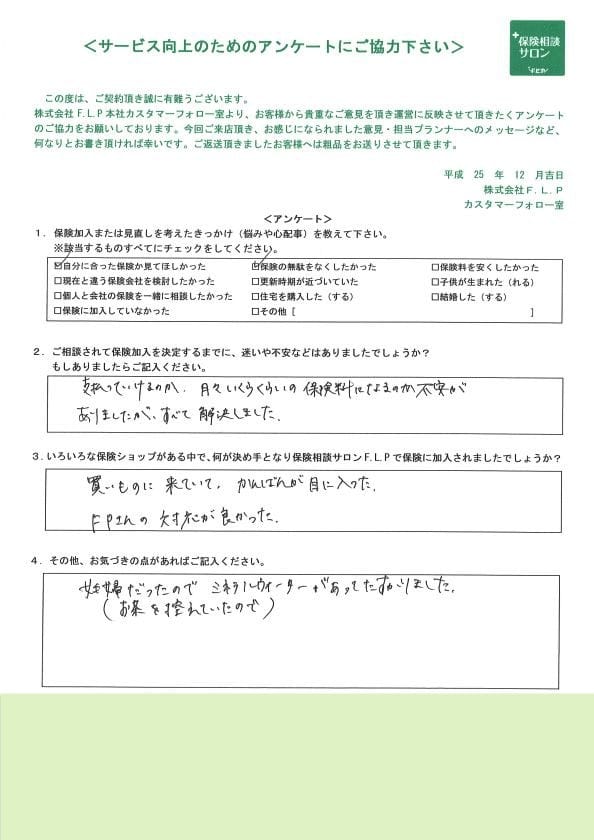 <サービス向上のためのアンケートにご協力下さい>
+保険相談
サロン
F.L.P
この度は、ご契約頂き誠に有難うございます。
株式会社F.L.P本社カスタマーフォロー室より、お客様から貴重なご意見を頂き運営に反映させて頂きたくアンケート
のご協力をお願いしております。今回ご来店頂き、お感じになられました意見・担当プランナーへのメッセージなど、
何なりとお書き頂ければ幸いです。ご返送頂きましたお客様へは粗品をお送りさせて頂きます。
平成 25 年 12 月吉日
株式会社F.L.P
カスタマーフォロー室
<アンケート>
1．保険加入または見直しを考えたきっかけ（悩みや心配事）を教えて下さい。
※該当するものすべてにチェックをしてください。
☑自分に合った保険か見てほしかった ☑保険の無駄をなくしたかった □保険料を安くしたかった
□現在と違う保険会社を検討したかった □更新時期が近づいていた □子供が生まれた（れる）
□個人と会社の保険を一緒に相談したかった □住宅を購入した（する） □結婚した（する）
□保険に加入していなかった □その他［ ］
2．ご相談されて保険加入を決定するまでに、迷いや不安などはありましたでしょうか？
もしありましたらご記入ください。
支払っていけるのか、月々いくらくらいの保険料になるのか不安が
ありましたが、すべて解決しました。
3．いろいろな保険ショップがある中で、何が決め手となり保険相談サロンF.L.Pで保険に加入されましたでしょうか？
買いものに来ていて、かんばんが目に入った。
FPさんの対応が良かった。
4．その他、お気づきの点があればご記入ください。
妊婦だったのでミネラルウォーターがあってたすかりました。
（お茶を控えていたので）